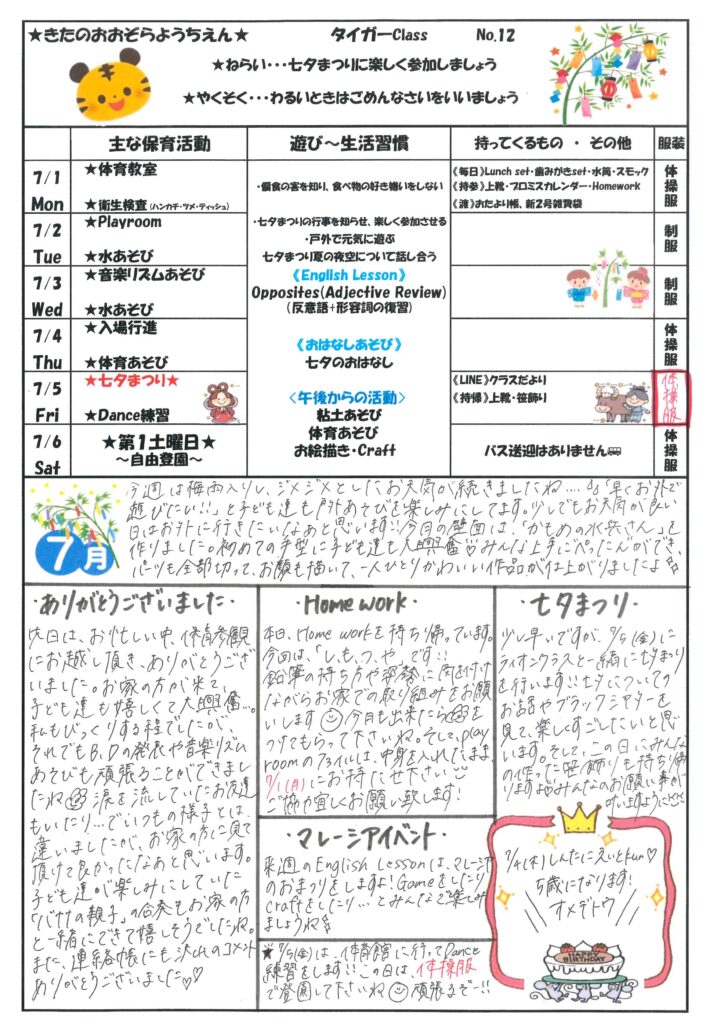 ★きたのおおぞらようちえん★ タイガーClass No.12
★ねらい・・・七夕まつりに楽しく参加しましょう
★やくそく・・・わるいときはごめんなさいをいいましょう
主な保育活動 遊び～生活習慣 持ってくるもの ・ その他 服装
7/1 Mon
★体育教室
★衛生検査(ハンカチ・ツメ・ティッシュ)
・偏食の害を知り、食べ物の好き嫌いをしない
《毎日》Lunch set・歯みがきset・水筒・スモック
《持参》上靴・プロミスカレンダー・Homework
《渡》おたより帳、新2号雑費袋
体操服
7/2 Tue
★Playroom
★水あそび
・七夕まつりの行事を知らせ、楽しく参加させる
・戸外で元気に遊ぶ
七夕まつり夏の夜空について話し合う
制服
7/3 Wed
★音楽リズムあそび
★水あそび
《English Lesson》
Opposites(Adjective Review)
(反意語+形容詞の復習)
制服
7/4 Thu
★入場行進
★体育あそび
《おはなしあそび》
七夕のおはなし
体操服
7/5 Fri
★七夕まつり★
★Dance練習
<午後からの活動>
粘土あそび
体育あそび
お絵描き・Craft
《LINE》クラスだより
《持帰》上靴・笹飾り
体操服
7/6 Sat
★第1土曜日★
～自由登園～
バス送迎はありません
体操服
7月
今週は梅雨入りし、ジメジメとしたお天気が続きましたね....。「早くお外で
遊びたい!!」と子ども達も戸外あそびを楽しみにしてます。少しでもお天気が良い
日はお外に行きたいなあと思います!!今月の壁面は、「かもめの水兵さん」を
作りました。初めての手型に子ども達も大興奮 みんな上手にぺったんができ、
パーツも全部切って、お顔も描いて、一人ひとりかわいい作品が仕上がりましたよ
・ありがとうございました・
先日は、お忙しい中、保育参観
にお越し頂き、ありがとうござ
いました。お家の方が来て、
子ども達も嬉しくて大興奮...
私もびっくりする程でしたが、
それでもB.Dの発表や音楽リズム
あそびも頑張ることができまし
たね 涙を流していたお友達
もいたり...でいつもの様子とは、
違いましたが、お家の方に見て
頂けて良かったなあと思います。
子ども達が楽しみにしていた
「バナナの親子」の合奏もお家の方
と一緒にできて嬉しそうでしたね。
また、連絡帳にも沢山のコメント
ありがとうございました♡♡
・Home work・
本日、Home workを持ち帰っています。
今回は、「し、も、つ、や」です!!
鉛筆の持ち方や姿勢に気を付け
ながらお家での取り組みをお願
いします 今月も出来たら
つけてもらって下さいね。そして、play
roomのファイルは、中身を入れたまま、
7/1(月)にお持たせ下さい
ご協力宜しくお願い致します!
・七夕まつり・
少し早いですが、7/5(金)に
ライオンクラスと一緒に七夕まつり
を行います!!七夕についての
お話やブラックシアターを
見て、楽しくすごしたいと思
います。そして、この日にみんな
の作った笹飾りも持ち帰
りますよ みんなのお願い事が
叶いますように
・マレーシアイベント・
来週のEnglish Lessonは、マレーシア
のおまつりをしますよ!Gameをしたり
Craftをしたり...とみんなで楽しみ
ましょうね
★7/5(金)は、体育館に行ってDance
練習をします!!この日は、体操服
で登園して下さいね 頑張るぞー!!
7/4(木)しんたにえいとkun♡
5歳になります!
オメデトウ
HAPPY BIRTHDAY